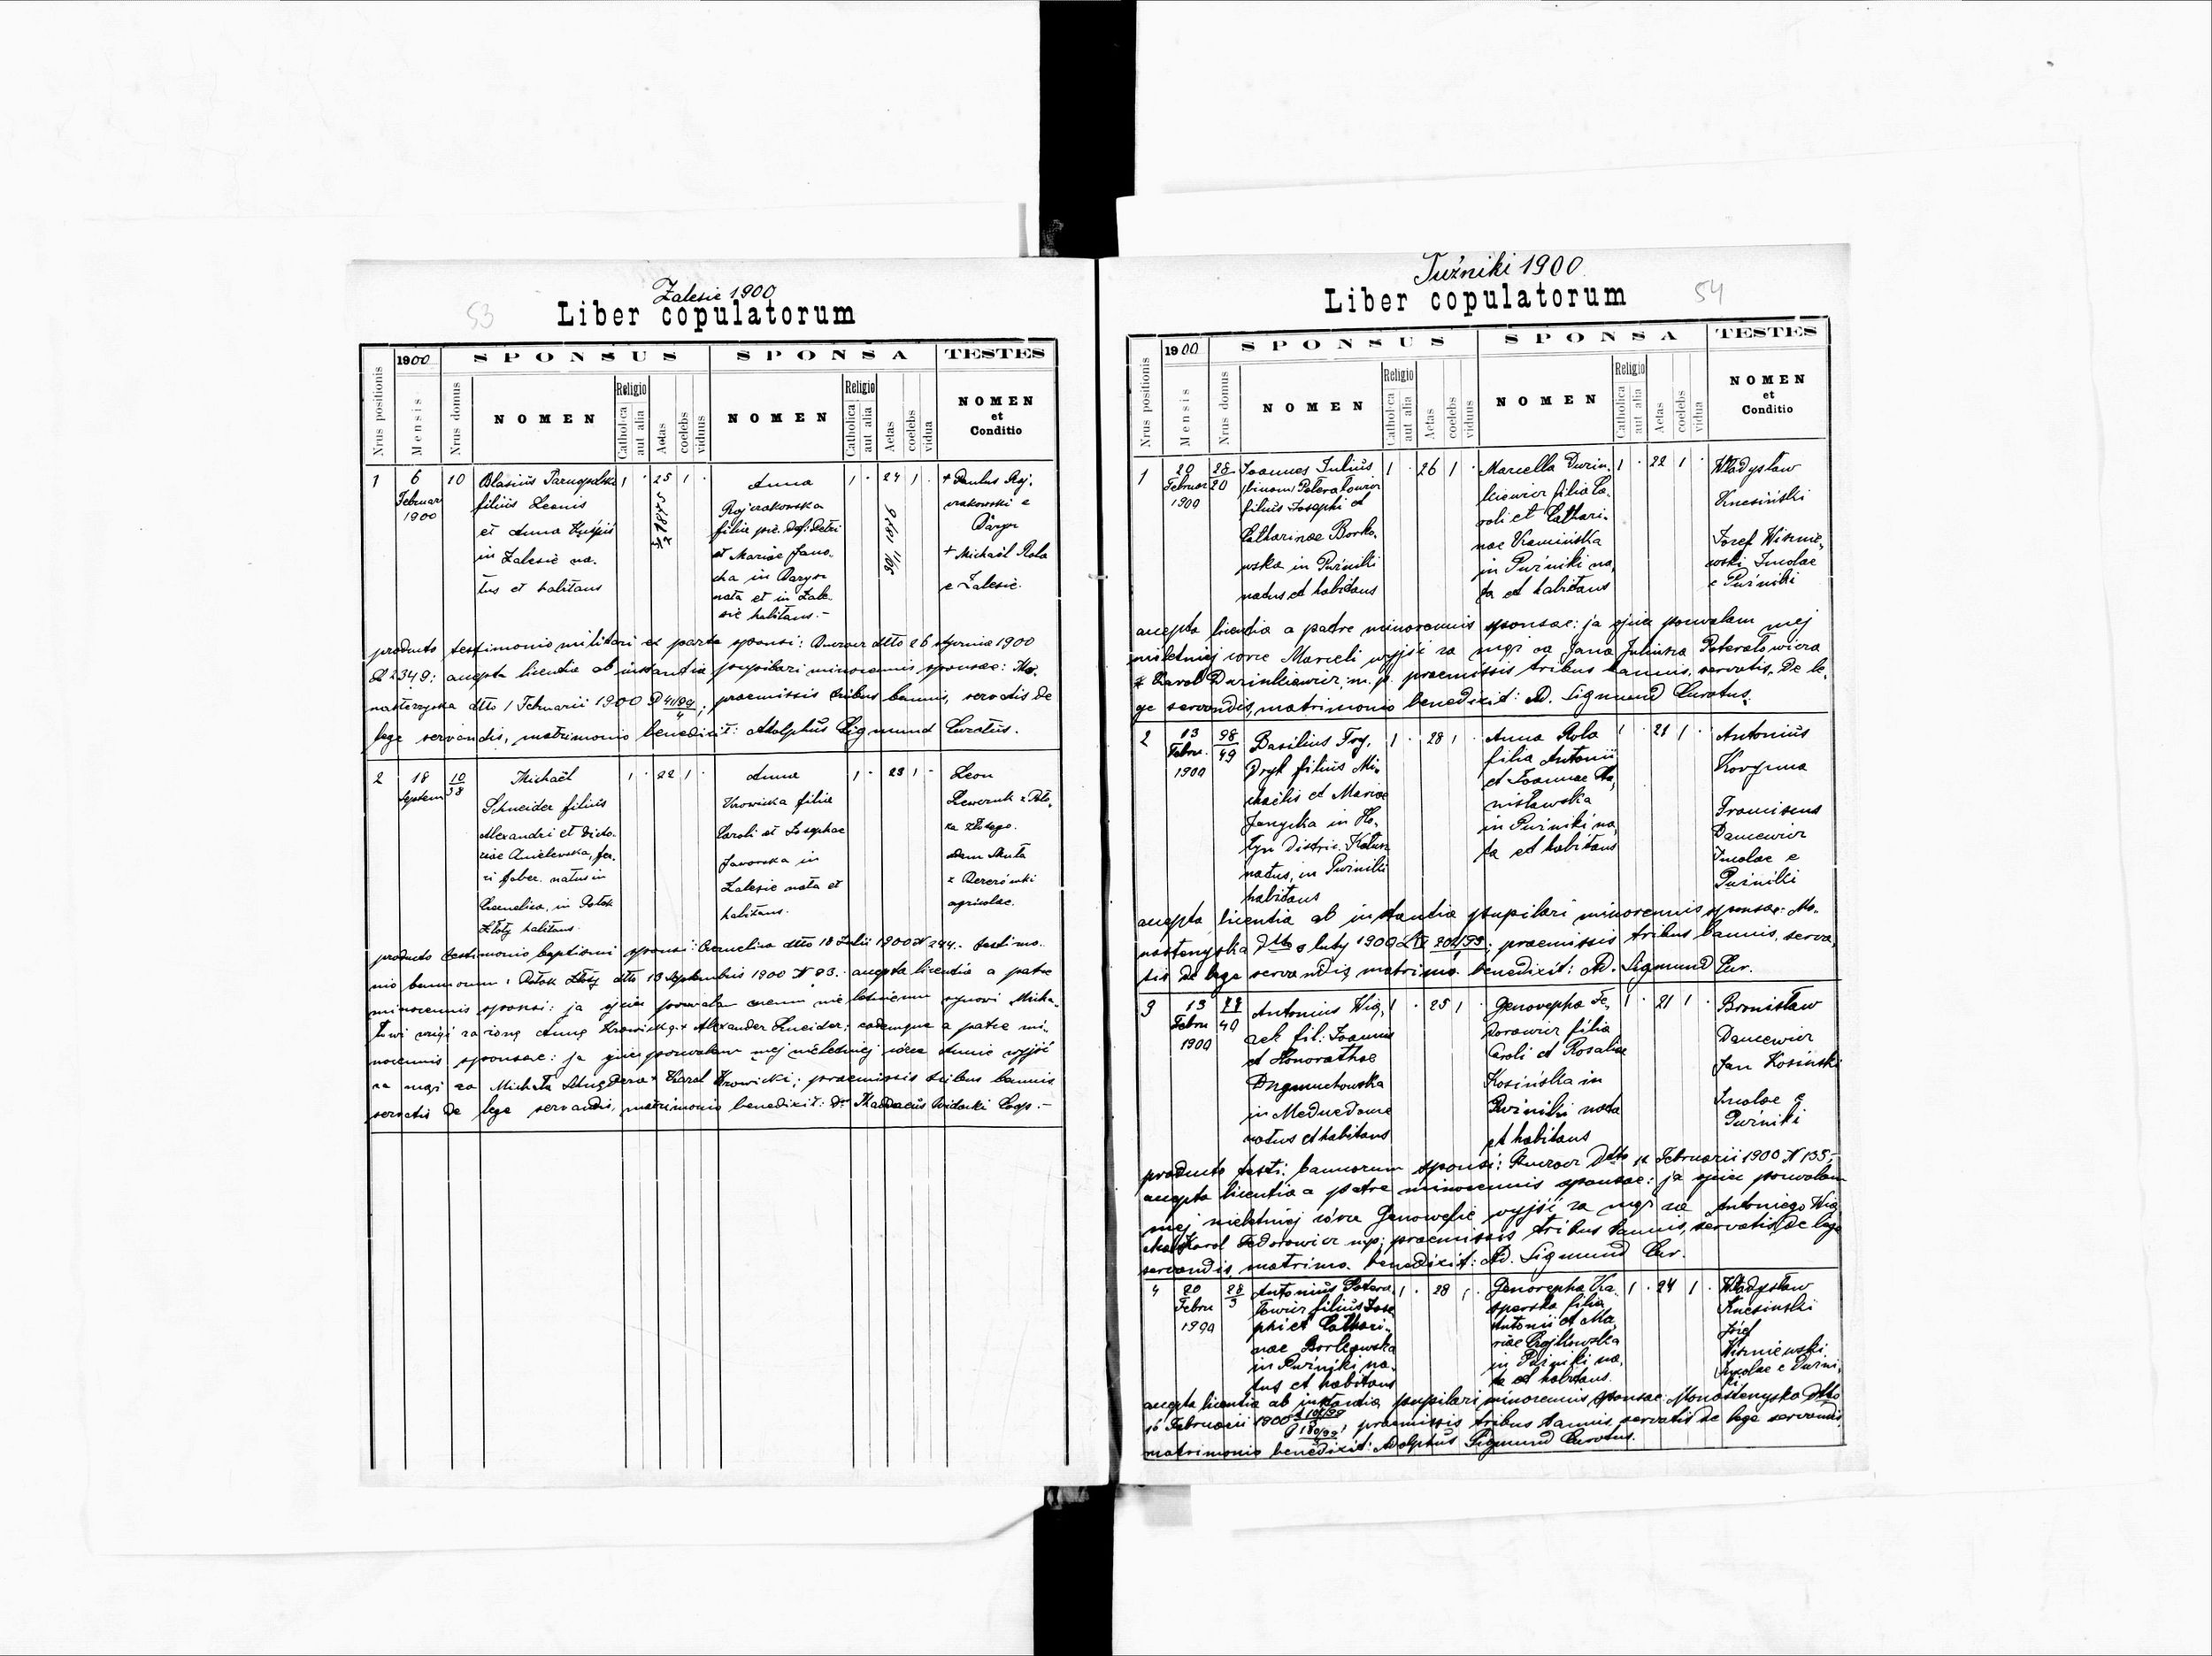 Zalesie 1900
53
Liber copulatorum
Nrus positionis
1900
Mensis
Nrus domus
SPONSUS
NOMEN
Religio
Catholica
aut alia
Aetas
coelebs
viduus
SPONSA
NOMEN
Religio
Catholica
aut alia
Aetas
coelebs
vidua
TESTES
NOMEN
et
Conditio
1
6
Februar
1900
10
Blasius
filius Leonis
et Anna
in Zalesie na-
tus et habitans
1 · 25 1 ·
Anna
Rojzakowska
filia
et Mariae Jano-
cha in Barysz
nata et in Zale-
sie habitans.-
1 · 24 1 ·
+ Paulus Roj-
zakowski e
Barysz
+ Michaël Rola
e Zalesie.
producto testimonio militari ex parte sponsi: dtto 26 stycznia 1900
2349: accepta licentia ab instantia pupilari minorennis sponsae: Mo-
nasterzyska dtto 1 Februarii 1900 praemissis tribus bannis, servatis de
lege servandis, matrimonio benedixit: Adolphus Sigmund Curatus.
2
18
Septem
10
38
Michaël
Schneider filius
Alexandri et Victo-
riae fer-
ri faber. natus in
in Potok
Złoty habitans.
1 · 22 1 ·
Anna
Krowicka filia
Caroli et Josephae
Jaworska in
Zalesie nata et
habitans.
1 · 23 1 ·
Leon
z Poto-
ka Złotego.
agricolae.
producto testimonio baptismi sponsi: dtto 18 Julii 1900 N 244. testimo-
nio bannorum: Potok Złoty dtto 13 Septembris 1900 N 93. accepta licentia a patre
minorennis sponsi: ja ojciec pozwalam memu nieletniemu synowi Micha-
łowi wziąć za żonę Annę Krowicką + Alexander Sneider; eademque a patre mi-
norennis sponsae: ja ojciec pozwalam mej nieletniej córce Annie wyjść
za mąż za Michała + Karol Krowicki; praemissis tribus bannis
servatis de lege servandis, matrimonio benedixit: Thaddaeus Coop.-
Tuźniki 1900
54
Liber copulatorum
Nrus positionis
1900
Mensis
Nrus domus
SPONSUS
NOMEN
Religio
Catholica
aut alia
Aetas
coelebs
viduus
SPONSA
NOMEN
Religio
Catholica
aut alia
Aetas
coelebs
vidua
TESTES
NOMEN
et
Conditio
1
20
Februar
1900
28
20
Joannes Julius
(binom) Poterałowicz
filius Josephi et
Catharinae Borko-
wska in Puźniki
natus et habitans
1 · 26 1 ·
Marcella Durin-
kiewicz filia Ca-
roli et Cathari-
nae Kamińska
in Puźniki na-
ta et habitans
1 · 22 1 ·
Władysław
Kncsiński
Jozef Wisznie-
wski Incolae
e Puźniki
accepta licentia a patre minorennis sponsae: ja ojciec pozwalam mej
nieletniej córce Marceli wyjść za mąż za Jana Juliusza Poterałowicza
+ Karol Durinkiewicz m. p. praemissis tribus bannis, servatis de le-
ge servandis, matrimonio benedixit: Ad. Sigmund Curatus.
2
13
Febru.
1900
98
49
Basilius Fry-
dryk filius Mi-
chaëlis et Mariae
Janycka in Ho-
łyn distric. Kałusz
natus, in Puźniki
habitans
1 · 28 1 ·
Anna Rola
filia Antonii
et Joannae Sta-
nisławska
in Puźniki na-
ta et habitans
1 · 21 1 ·
Antonius
Franciscus
Dancewicz
Incolae e
Puźniki
accepta licentia ab instantia pupilari minorennis sponsae: Mo-
nasterzyska luty 1900 praemissis tribus bannis, serva-
tis de lege servandis matrimo. benedixit: Ad. Sigmund Cur.
3
13
Febru
1900
40
Antonius Wią-
zek fil: Joannis
et Honorathae
in
natus et habitans
1 · 25 1 ·
Genovepha Fe-
dorowicz filia
Caroli et Rosaliae
Kosińska in
Puźniki nata
et habitans
1 · 21 1 ·
Bronisław
Dancewicz
Jan Kosiński
Incolae e
Puźniki
producto testi. bannorum sponsi: Februarii 1900 N 135;
accepta licentia a patre minorennis sponsae: ja ojciec pozwalam
mej nieletniej córce Genowefie wyjść za mąż za Antoniego Wią
Karol Fedorowicz mp; praemissis tribus bannis, servatis de lege
servandis, matrimo. benedixit: Ad. Sigmund Cur.
4
20
Febru
1900
28
3
Antonius Potera-
łowicz filius Jose-
phi et Cathari-
nae Borkowska
in Puźniki na-
tus et habitans
1 · 28 1 ·
Genovepha Ka-
sperska filia
Antonii et Ma-
riae
in Puźniki na-
ta et habitans.
1 · 24 1 ·
Władysław
Kncsinski
Józef
Wiszniewski
Incolae e Puźni-
ki
accepta licentia ab instantia pupilari minorennis sponsae: Monasterzyska dtto
Februarii 1900 praemissis tribus bannis, servatis de lege servandis
matrimonio benedixit: Adolphus Sigmund Curatus.